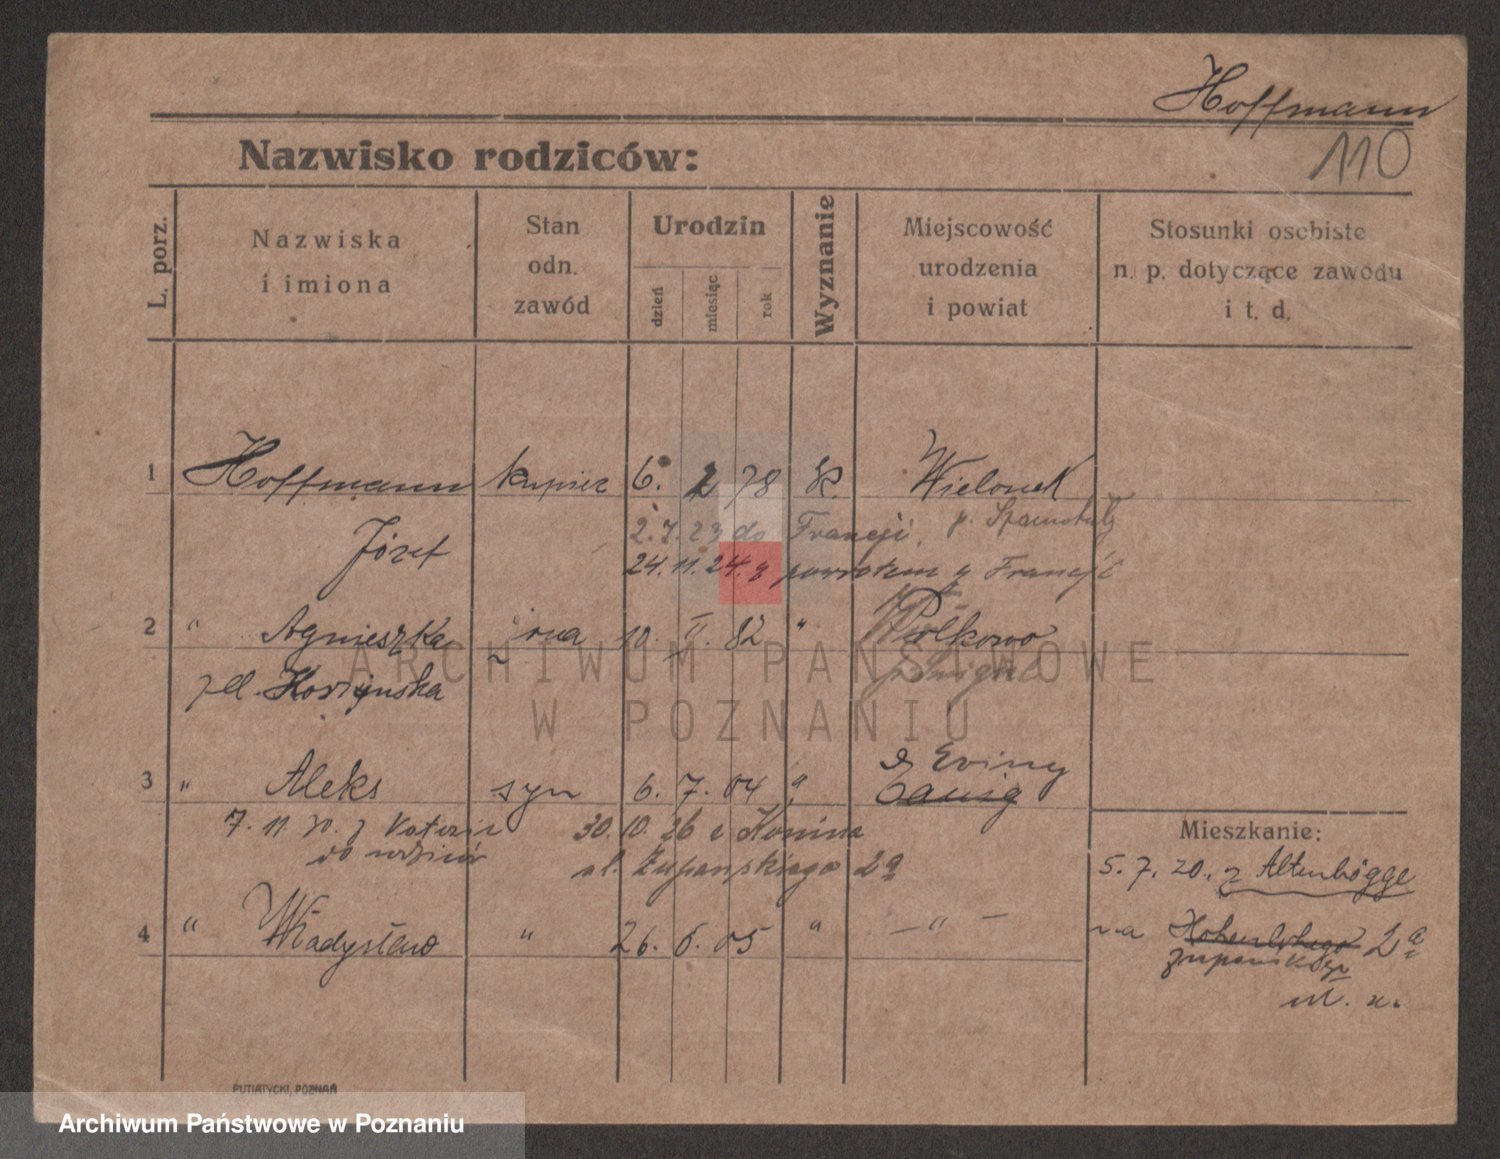 Hoffmann
110
Nazwisko rodziców:
L. porz.
Nazwiska
i imiona
Stan
odn.
zawód
Urodzin
dzień
miesiąc
rok
Wyznanie
Miejscowość
urodzenia
i powiat
Stosunki osobiste
n. p. dotyczące zawodu
i t. d.
1 Hoffmann kupiec 6. 2 78 k. Wielonek
p. Szamotuły
Józef 2.7.23 do Francji
24.11.24. z powrotem z Francji
2 " Agnieszka żona 10. II. 82 " Piotkowo
zd.
3 " Aleks syn 6. 7. 04 "
7. 11. do rodziców
30.10.26 z Konina
ul. Żupańskiego 2a
4 " Władysław " 26. 6. 05 " — " —
Mieszkanie:
5. 7. 20. z Altenbögge
na 2a
m.
ARCHIWUM PAŃSTWOWE
W POZNANIU
PUTIATYCKI, POZNAŃ
Archiwum Państwowe w Poznaniu